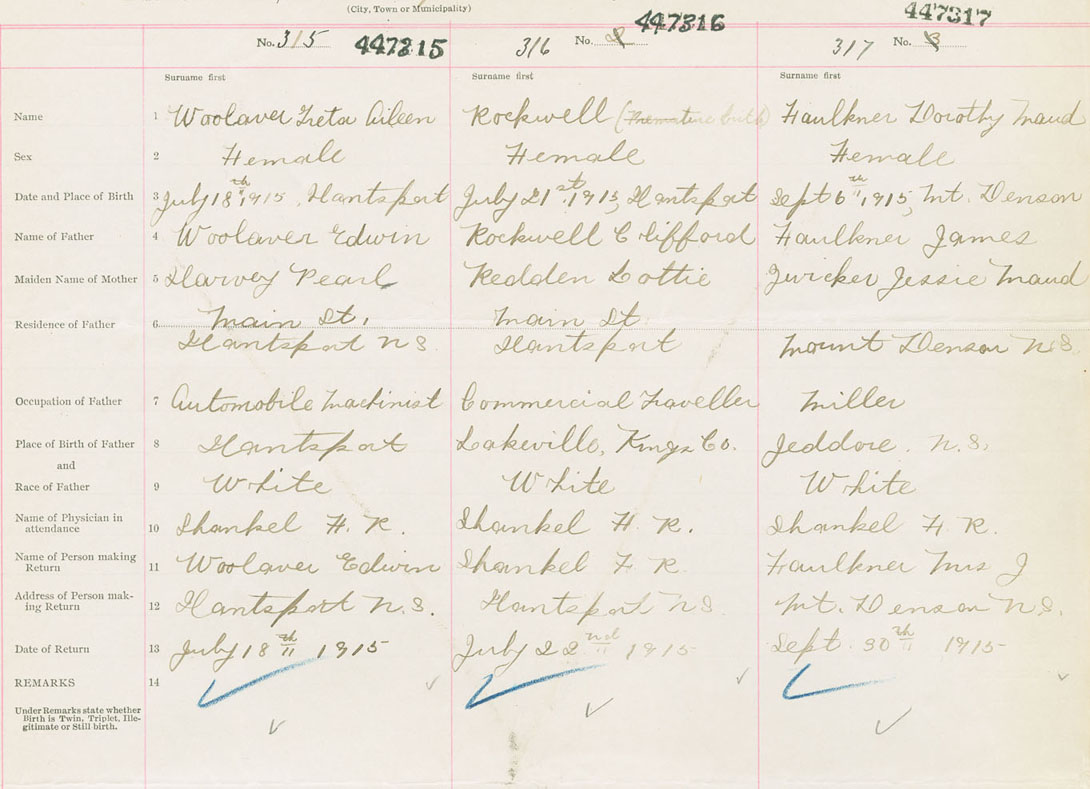 (City, Town or Municipality)
No. 315 447315 316 No. 2 447316 317 No. 3 447317
Surname first Surname first Surname first
Name 1 Woolaver Greta Aileen Rockwell (Premature birth) Faulkner Dorothy Maud
Sex 2 Female Female Female
Date and Place of Birth 3 July 18th 1915, Hantsport July 21st, 1915, Hantsport Sept 6th, 1915, Mt. Denson
Name of Father 4 Woolaver Edwin Rockwell Clifford Faulkner James
Maiden Name of Mother 5 Harvey Pearl Redden Lottie Zwicker Jessie Maud
Residence of Father 6 Main St, Main St
Hantsport N S Hantsport Mount Denson N S
Occupation of Father 7 Automobile Machinist Commercial Traveller Miller
Place of Birth of Father 8 Hantsport Lakeville, Kings Co. Jeddore, N.S.
and
Race of Father 9 White White White
Name of Physician in
attendance 10 Shankel F. R. Shankel F. R. Shankel F. R.
Name of Person making
Return 11 Woolaver Edwin Shankel F R Faulkner Mrs J
Address of Person mak-
ing Return 12 Hantsport N.S. Hantsport N S Mt. Denson N.S.
Date of Return 13 July 18th 1915 July 22nd 1915 Sept. 30th 1915
REMARKS 14
Under Remarks state whether
Birth is Twin, Triplet, Ille-
gitimate or Still birth.